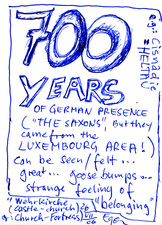 e.g.: Cisnadie
HELTAU
700
YEARS
OF GERMAN PRESENCE
("THE SAXONS", But they
came from the
LUXEMBOURG AREA!)
can be seen/felt...
great... goose bumps...
strange feeling of
"Wehrkirche" "belonging"
(castle-church)
Church-Fortress